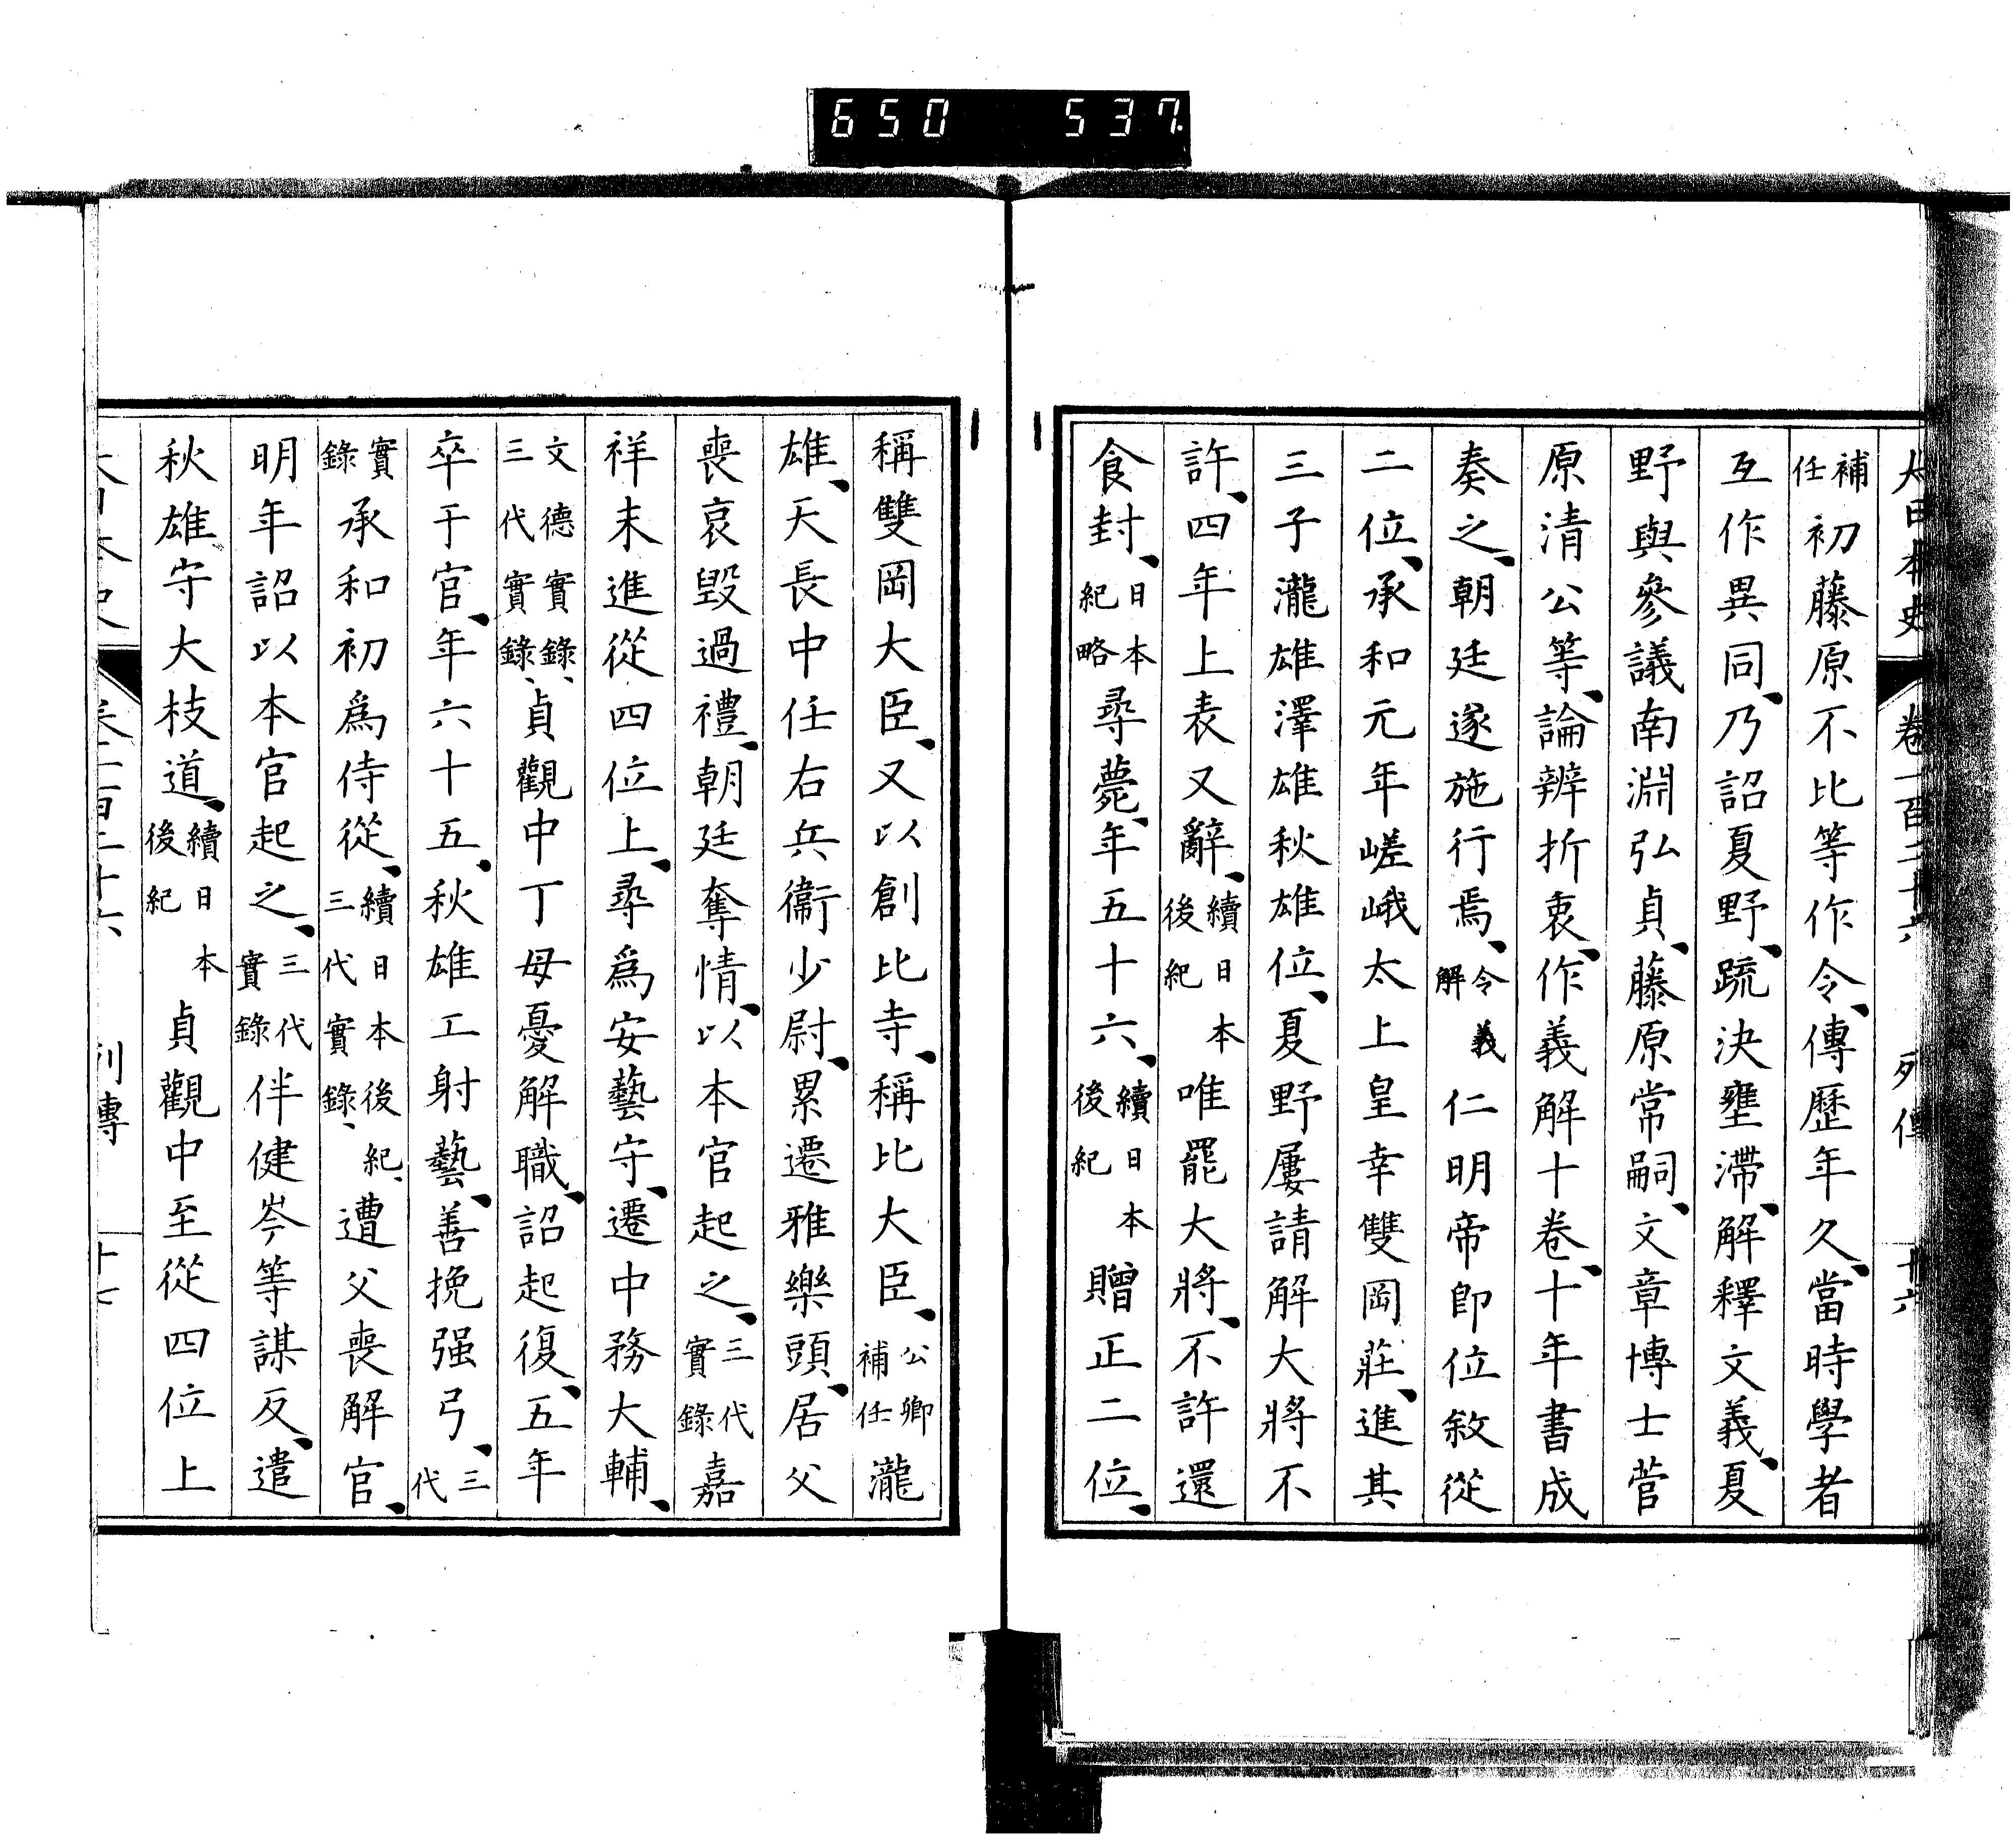 650 537
大日本史 卷一百二十六 列傳 十六
補任初藤原不比等作令、傳歷年久、當時學者
互作異同、乃詔夏野、疏決壅滯、解釋文義、夏
野與參議南淵弘貞、藤原常嗣、文章博士菅
原清公等、論辨折衷、作義解十卷、十年書成
奏之、朝廷遂施行焉、令義解仁明帝卽位敘從
二位、承和元年嵯峨太上皇幸雙岡莊、進其
三子瀧雄澤雄秋雄位、夏野屢請解大將不
許、四年上表又辭、續日本後紀唯罷大將、不許還
食封、日本紀略尋薨、年五十六、續日本後紀贈正二位、
稱雙岡大臣、又以創比寺、稱比大臣、公卿補任瀧
雄、天長中任右兵衞少尉、累遷雅樂頭、居父
喪哀毀過禮、朝廷奪情、以本官起之、三代實錄嘉
祥末進從四位上、尋爲安藝守、遷中務大輔、
文德實錄、三代實錄、貞觀中丁母憂解職、詔起復、五年
卒于官、年六十五、秋雄工射藝、善挽强弓、三代
實錄承和初爲侍從、續日本後紀、三代實錄、遭父喪解官、
明年詔以本官起之、三代實錄伴健岑等謀反、遣
秋雄守大枝道、續日本後紀貞觀中至從四位上
大日本史 卷一百二十六 列傳 十七